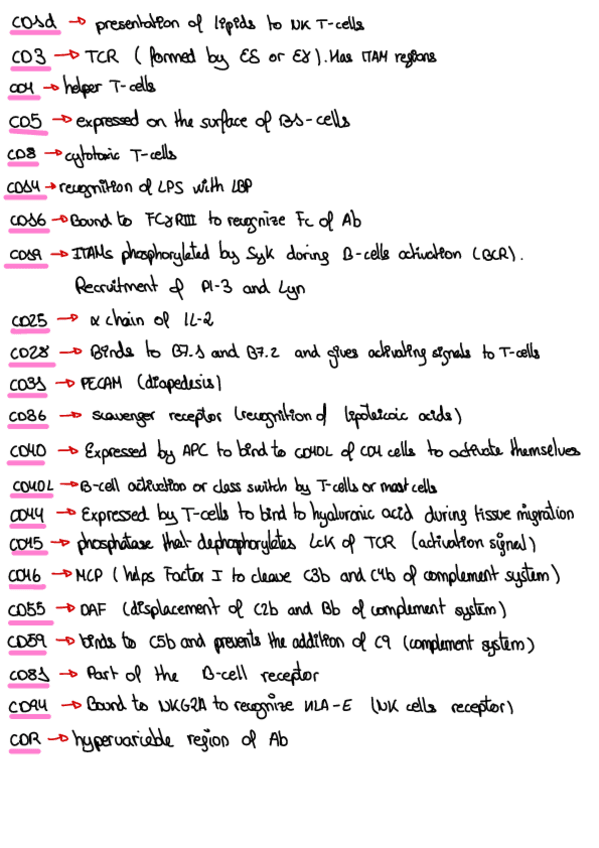 CD1d → presentation of lipids to NK T-cells
CD3 → TCR (formed by εδ or εγ). Has ITAM regions
CD4 → helper T-cells
CD5 → expressed on the surface of B1-cells
CD8 → cytotoxic T-cells
CD14 → recognition of LPS with LBP
CD16 → Bound to FCγRIII to recognize Fc of Ab
CD19 → ITAMs phosphorylated by Syk during B-cells activation (BCR).
Recruitment of PI-3 and Lyn
CD25 → α chain of IL-2
CD28 → Binds to B7.1 and B7.2 and gives activating signals to T-cells
CD31 → PECAM (diapedesis)
CD36 → scavenger receptor (recognition of lipoteicoic acids)
CD40 → Expressed by APC to bind to CD40L of CD4 cells to activate themselves
CD40L → B-cell activation or class switch by T-cells or mast cells
CD44 → Expressed by T-cells to bind to hyaluronic acid during tissue migration
CD45 → phosphatase that dephosphorylates Lck of TCR (activation signal)
CD46 → MCP (helps Factor I to cleave C3b and C4b of complement system)
CD55 → DAF (displacement of C2b and Bb of complement system)
CD59 → binds to C5b and prevents the addition of C9 (complement system)
CD81 → Part of the B-cell receptor
CD94 → Bound to NKG2A to recognize HLA-E (NK cells receptor)
CDR → hypervariable region of Ab